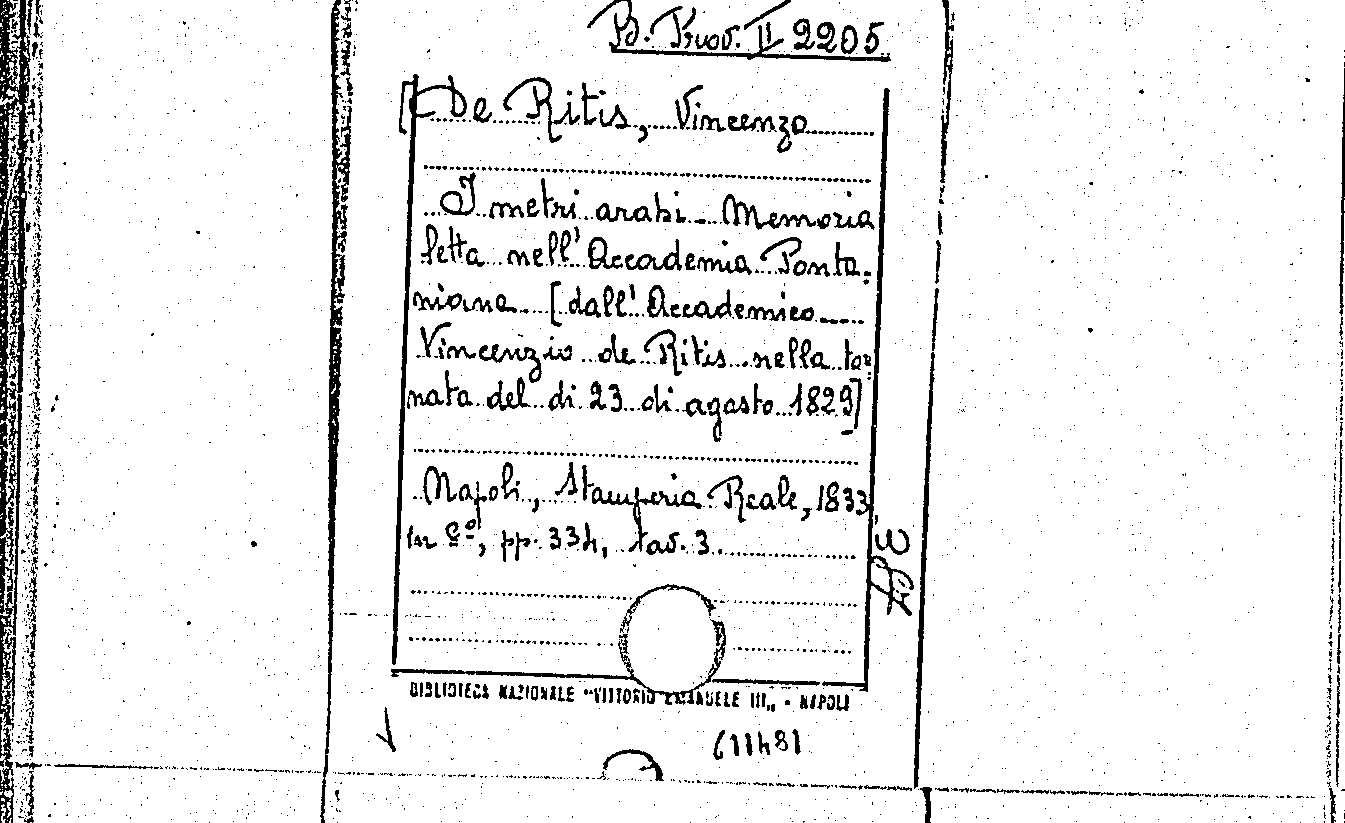 B. Prov. II 2205
[De Ritis, Vincenzo
I metri arabi - Memoria
letta nell'Accademia Ponta-
niana [dall'Accademico
Vincenzio de Ritis nella tor=
nata del di 23 di agosto 1829]
Napoli, Stamperia Reale, 1833
in 8º, pp. 334, tav. 3.
BIBLIOTECA NAZIONALE "VITTORIO EMANUELE III„ - NAPOLI